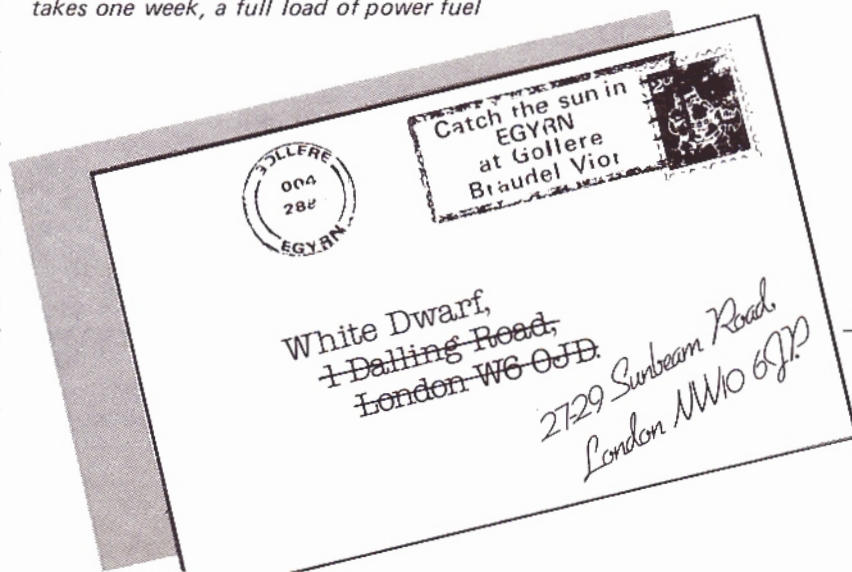 takes one week, a full load of power fuel
OLLERE
004
28
EGYRN
Catch the sun in
EGYRN
at Gollere
Braudel Vior
White Dwarf,
1 Dalling Road,
London W6 0JD.
27-29 Sunbeam Road,
London NW10 6JP.